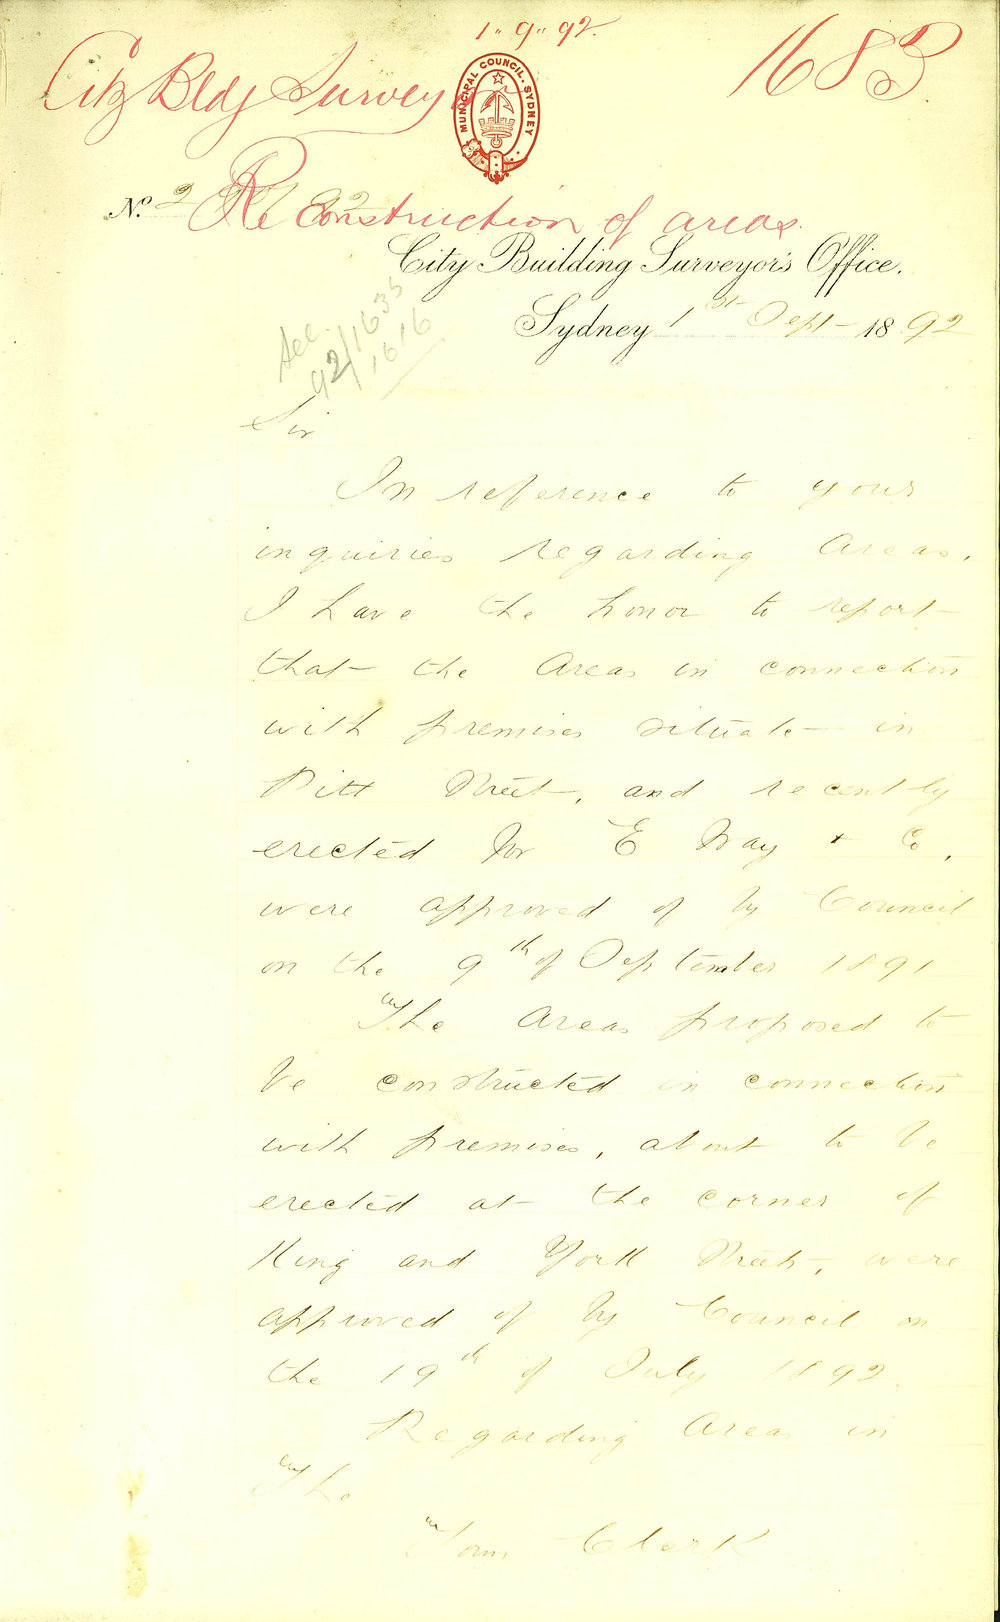 1 " 9 " 92.
City Bldg Surveyor
1683
MUNICIPAL COUNCIL. SYDNEY
No. 2 92
Re Construction of areas.
City Building Surveyor's Office.
Sydney 1st Sept 1892
See
92/1635
1616
Sir
In reference to your
inquiries regarding Areas,
I have the honor to report
that the Areas in connection
with premises situate in
Pitt Street, and recently
erected for E Way & Co,
were approved of by Council
on the 9th of September 1891
The Areas proposed to
be constructed in connection
with premises, about to be
erected at the corner of
King and York Streets, were
approved of by Council on
the 19th of July 1892.
Regarding Areas in
The
Town Clerk